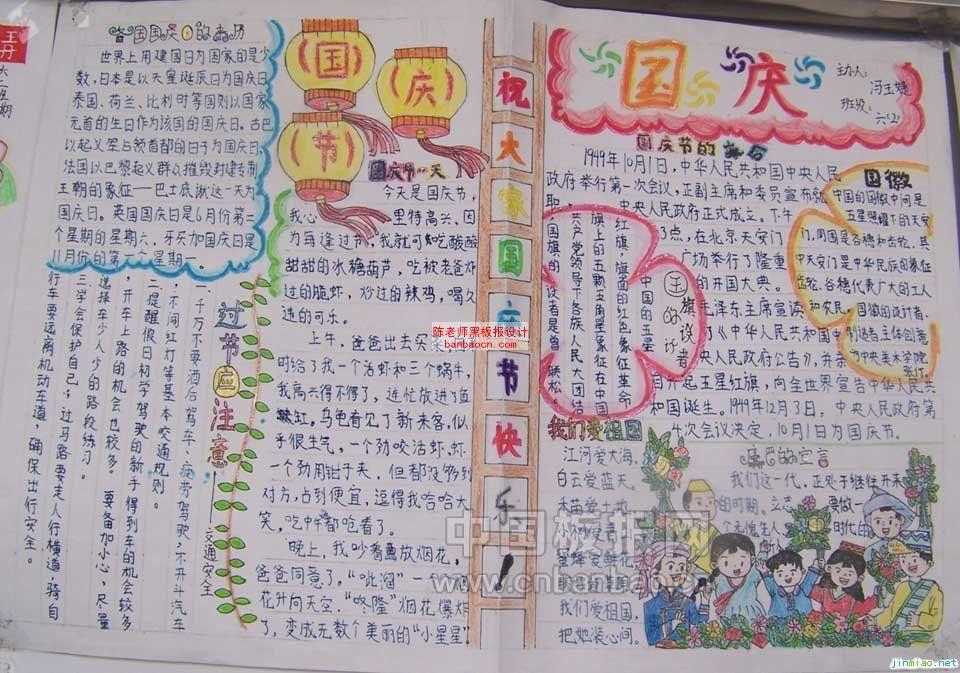 各国国庆日的来历
世界上用建国日为国家的是少
数,日本是以天皇诞辰日为国庆日
泰国、荷兰、比利时等国则以国家
元首的生日作为该国的国庆日。古巴
以起义军占领首都的日子为国庆日
法国以巴黎起义群众摧毁封建专制
王朝的象征——巴士底狱这一天为
国庆日。英国国庆日是6月份第二
个星期的星期六、牙买加国庆日是
11月份的第一个星期一。
过节应注意
交通安全
一、千万不要酒后驾车、疲劳驾驶,不开斗汽车
不闯红灯等基本交通规则
二、提醒假日初学驾驶的新手得到车的机会较多
,开车上路的机会也较多。要备加小心,尽量
选择车少人少的路段练习。
三、学会保护自己,过马路要走人行横道,骑自
行车要远离机动车道,确保出行安全。
国庆节
国庆节一天
今天是国庆节,
我心里特高兴、因
为每逢过节,我就可以吃酸酸
甜甜的冰糖葫芦,吃被老爸炸
过的脆虾,炒过的辣鸡,喝久
违的可乐。
上午,爸爸出去买菜
时给了我一个活虾和三个蜗牛,
我高兴得不得了,连忙放进了鱼
缸。乌龟看见了新来客,似
乎很生气,一个劲咬活虾,虾
一个劲用钳子夹,但都没够到
对方,占到便宜,逗得我哈哈大
笑。
晚上,我吵着要放烟花,
爸爸同意了。“吡熘”一
花升向天空.“咚隆”烟花爆炸
了,变成无数个美丽的“小星星”
祝大家国庆节快乐!
国庆
主办人:冯玉婕
班级:六(2)
国庆节的
1949年10月1日,中华人民共和国中央人民
政府举行第一次会议,正副主席和委员宣布就
职,中央人民政府正式成立。下午
3点,在北京天安门
广场举行了隆重
的开国大典。
毛泽东主席宣读
了《中华人民共和国中
央人民政府公告》,并亲
自升起五星红旗,向全世界宣告中华人民共
和国诞生。1949年12月3日,中央人民政府第
4次会议决定,10月1日为国庆节。
国旗的设计者
中国的五星
红旗,旗面的红色象征革命,
旗上的五颗五角星象征在中国
共产党领导下各族人民大团结
国旗的设计者是曾联松。
国徽
中国的国徽中间是
五星照耀下的天安
门,周围是谷穗和齿轮,其
中天安门是中华民族的象征
齿轮、谷穗代表广大的工人
和农民。国徽的设计者,
中央美术学院
张仃。
我们爱祖国
江河爱大海,
白云爱蓝天。
禾苗爱土地
小鸟爱青
蜜蜂爱鲜花
我们爱祖国,
把她装心间。
我们这一代,正处于继往开来
的时期。立志要做
时代的
陈老师黑板报设计
banbaocn.com
中国板报网
www.cnbanbao.cn
jinmiao.net